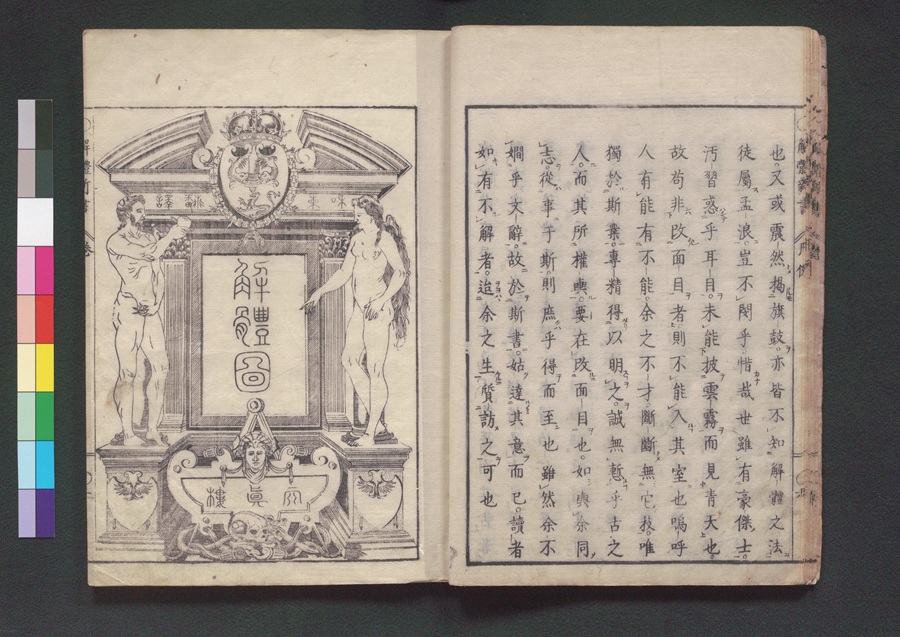 也。又或震然揭旗鼓。亦皆不知解體之法
徒屬孟浪。豈不閔乎。惜哉世雖有豪傑士。
汚習惑乎耳目。未能披雲霧而見青天也。
故苟非改面目者則不能入其室也嗚呼
人有能有不能。余之不才。斷斷無它技。唯
獨於斯業。專精得以明之。誠無慙乎古之
人。而其所權輿。要在改面目也。如與余同
志。從事于斯。則庶乎得而至也雖然余不
嫺乎文辭。故於斯書。姑達其意而已。讀者
如有不解者。迨余之生。質訪之可也
解體圖